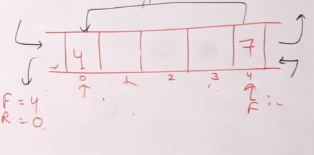 4 7
0 1 2 3 4
F = 4
R = 0
F